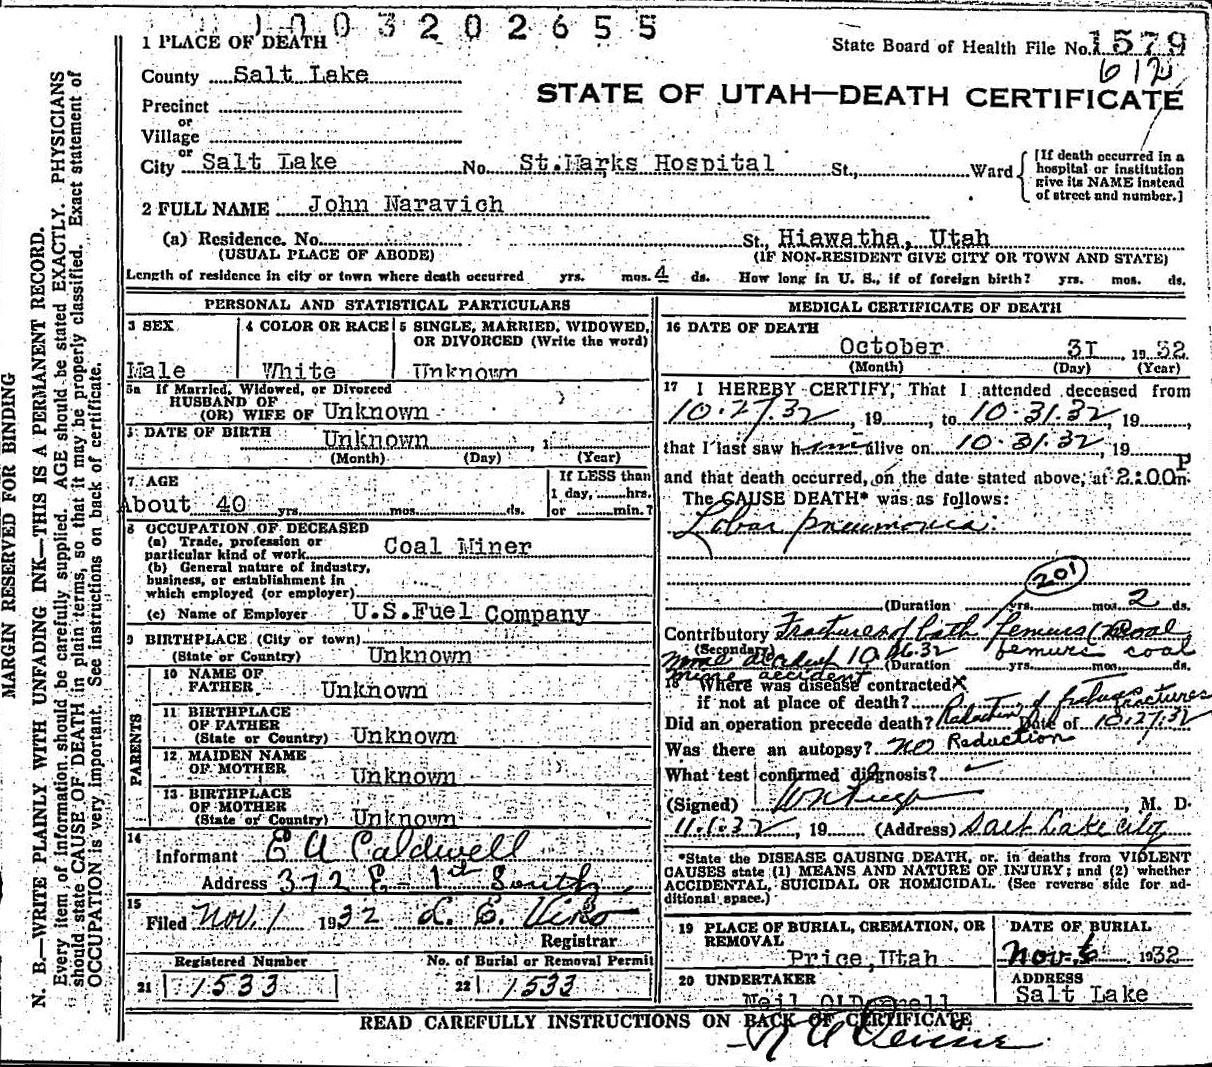 1003202655
1 PLACE OF DEATH
State Board of Health File No. 1579
612
County Salt Lake
STATE OF UTAH—DEATH CERTIFICATE
Precinct
or
Village
or
City Salt Lake No. St.Marks Hospital St., Ward
[If death occurred in a
hospital or institution
give its NAME instead
of street and number.]
2 FULL NAME John Naravich
(a) Residence. No. St., Hiawatha, Utah
(USUAL PLACE OF ABODE) (IF NON-RESIDENT GIVE CITY OR TOWN AND STATE)
Length of residence in city or town where death occurred yrs. mos. 4 ds. How long in U. S., if of foreign birth? yrs. mos. ds.
PERSONAL AND STATISTICAL PARTICULARS
3 SEX
Male
4 COLOR OR RACE
White
5 SINGLE, MARRIED, WIDOWED,
OR DIVORCED (Write the word)
Unknown
5a If Married, Widowed, or Divorced
HUSBAND OF
(OR) WIFE OF Unknown
DATE OF BIRTH Unknown , 1
(Month) (Day) (Year)
7 AGE
About 40 yrs. mos. ds.
If LESS than
1 day, hrs.
or min.?
8 OCCUPATION OF DECEASED
(a) Trade, profession or
particular kind of work Coal Miner
(b) General nature of industry,
business, or establishment in
which employed (or employer)
(c) Name of Employer U.S.Fuel Company
9 BIRTHPLACE (City or town)
(State or Country) Unknown
PARENTS
10 NAME OF
FATHER Unknown
11 BIRTHPLACE
OF FATHER
(State or Country) Unknown
12 MAIDEN NAME
OF MOTHER Unknown
13 BIRTHPLACE
OF MOTHER
(State or Country) Unknown
14
Informant E A Caldwell
Address 372 E - 1st South
15
Filed Nov. 1 1932 L. E.
Registrar
Registered Number
21 1533
No. of Burial or Removal Permit
22 1533
MEDICAL CERTIFICATE OF DEATH
16 DATE OF DEATH
October 31 1932
(Month) (Day) (Year)
17 I HEREBY CERTIFY, That I attended deceased from
10-27-32, 19 , to 10-31-32, 19 ,
that I last saw him alive on 10-31-32, 19
and that death occurred, on the date stated above, at 2:00 P m.
The CAUSE DEATH* was as follows:
Lobar pneumonia
201
(Duration yrs. mos. 2 ds.
Contributory Fractures of both femurs (coal
(Secondary) femurs coal
mine accident 10 26.32
(Duration yrs. mos. ds.
mine accident
18 Where was disease contracted
if not at place of death?
Did an operation precede death? Reduction of fractures Date of 10-27-32
fractures
Was there an autopsy? no Reduction
What test confirmed diagnosis?
(Signed) , M. D.
11-1-32, 19 (Address) Salt Lake City
*State the DISEASE CAUSING DEATH, or, in deaths from VIOLENT
CAUSES state (1) MEANS AND NATURE OF INJURY; and (2) whether
ACCIDENTAL, SUICIDAL OR HOMICIDAL. (See reverse side for ad-
ditional space.)
19 PLACE OF BURIAL, CREMATION, OR
REMOVAL
Price, Utah
DATE OF BURIAL
Nov. 1932
20 UNDERTAKER
Neil O'Donnell
ADDRESS
Salt Lake
READ CAREFULLY INSTRUCTIONS ON BACK OF CERTIFICATE
MARGIN RESERVED FOR BINDING
N. B.—WRITE PLAINLY WITH UNFADING INK—THIS IS A PERMANENT RECORD.
Every item of information should be carefully supplied. AGE should be stated EXACTLY. PHYSICIANS
should state CAUSE OF DEATH in plain terms, so that it may be properly classified. Exact statement of
OCCUPATION is very important. See instructions on back of certificate.